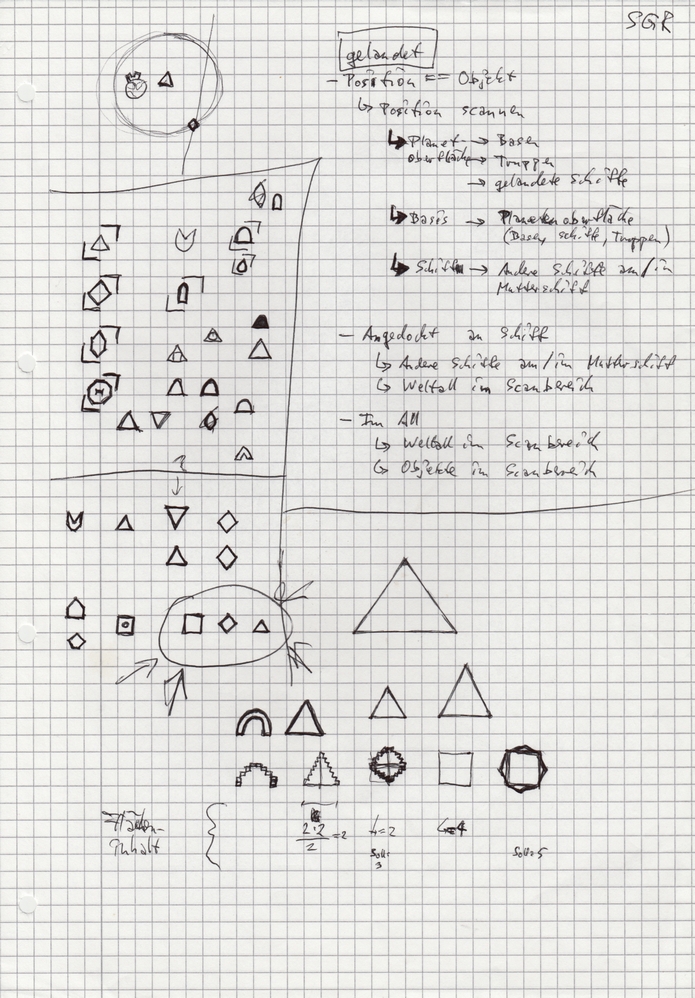 SGR
gelandet
- Position == Objekt
↳ Position scannen
↳ Planet- → Basen
oberfläche → Truppen
→ gelandete Schiffe
↳ Basis → Planetenoberfläche
(Basen, Schiffe, Truppen)
↳ Schiff → Andere Schiffe am/in
Mutterschiff
- Angedockt an Schiff
↳ Andere Schiffe am/im Mutterschiff
↳ Weltall im Scanbereich
- Im All
↳ Weltall im Scanbereich
↳ Objekte im Scanbereich
?
H
Flächen-
inhalt {
2·2
2 =2
4=2
Soll=
3
4
Soll=5